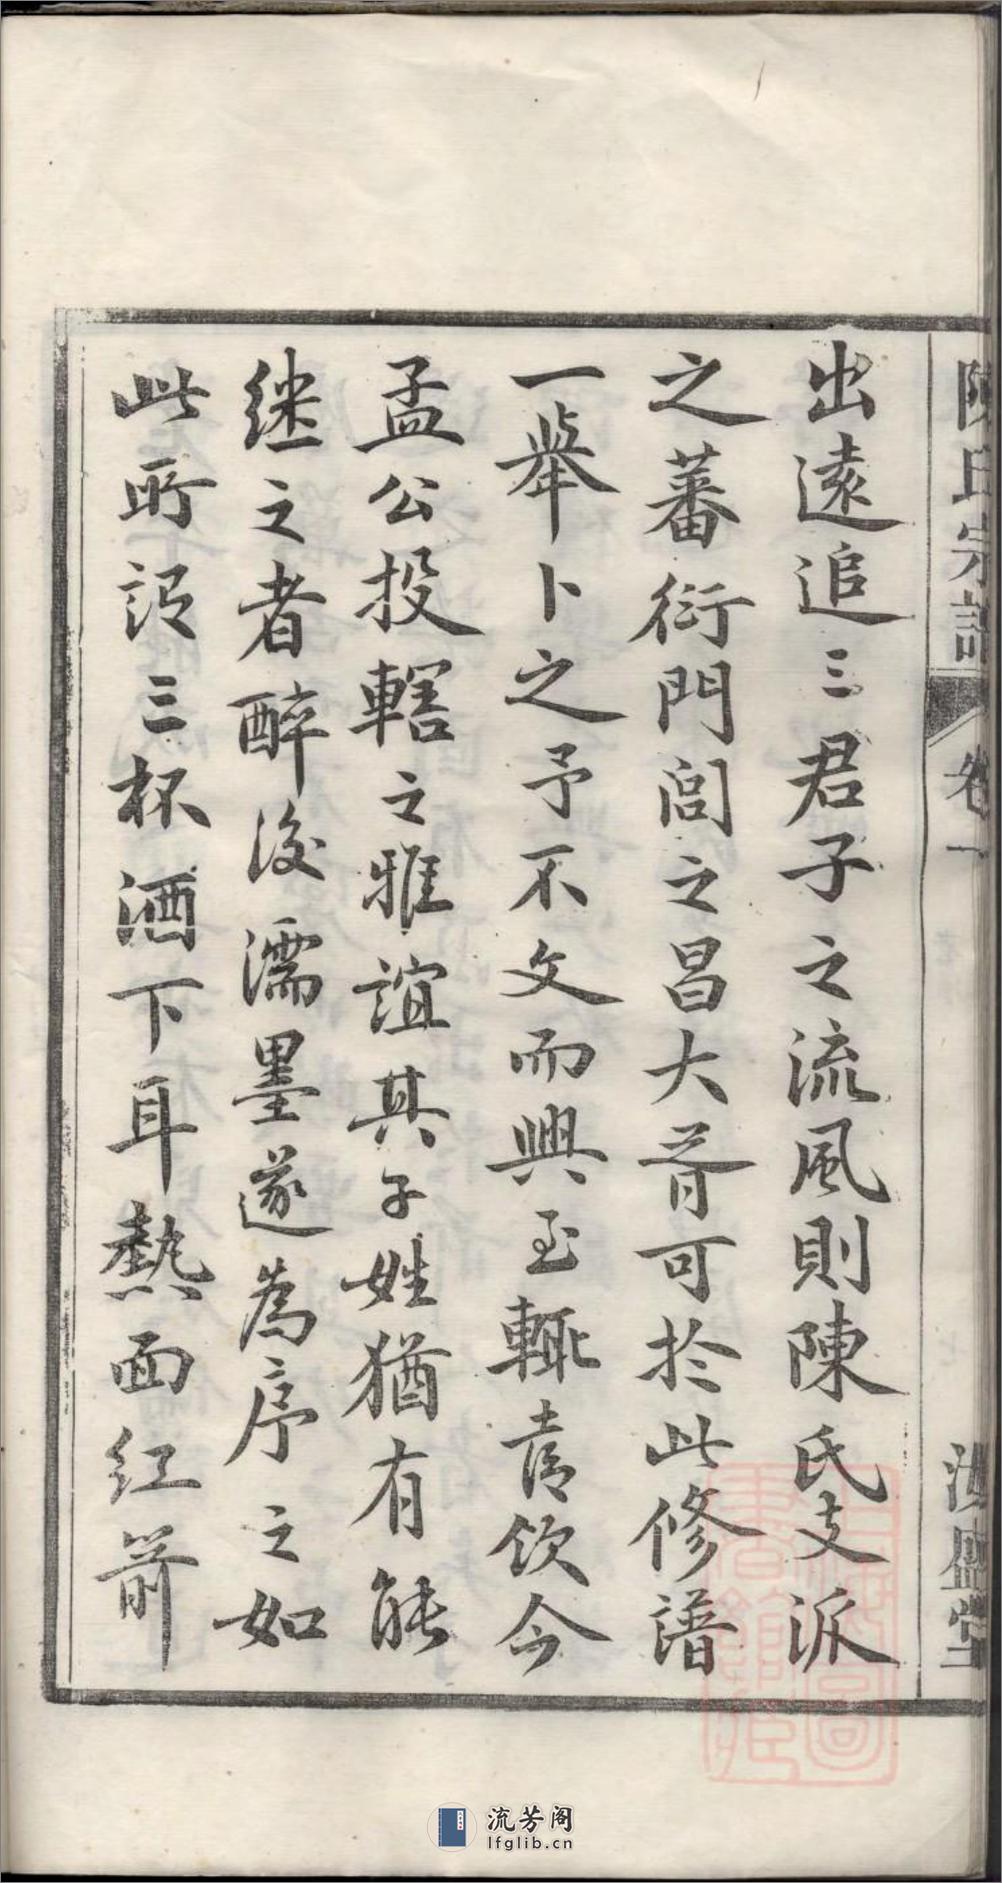 陳氏宗譜
卷一
盛堂
出遠追三君子之流風則陳氏支派
之蕃衍門閭之昌大胥可於此修譜
一舉卜之予不文而興至輒書飲今
孟公投轄之雅誼其子姓猶有能
继之者醉後濡墨遂為序之如
此所謂三杯酒下耳熱面红前
流芳阁
lfglib.cn